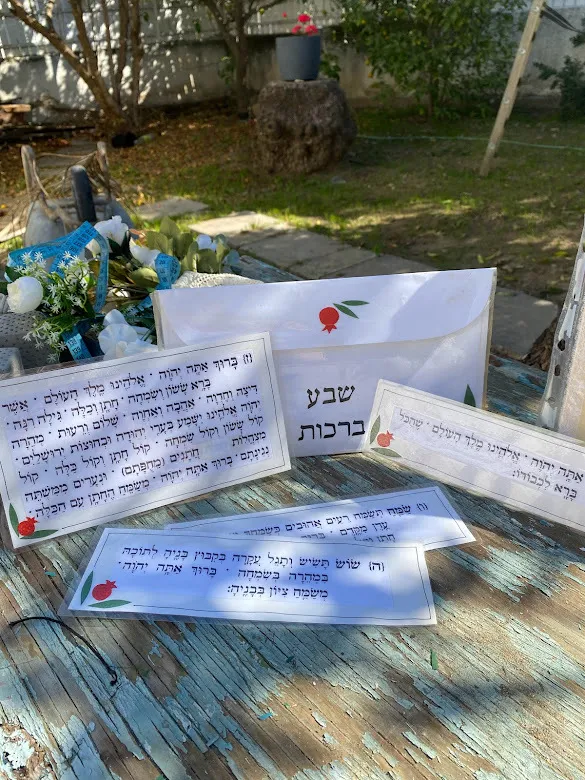 שבע
ברכות
(ז) בָּרוּךְ אַתָּה יְהוָה · אֱלֹהֵינוּ מֶלֶךְ הָעוֹלָם · אֲשֶׁר
בָּרָא שָׂשׂוֹן וְשִׂמְחָה · חָתָן וְכַלָּה · גִּילָה רִנָּה
דִּיצָה וְחֶדְוָה · אַהֲבָה וְאַחֲוָה · שָׁלוֹם וְרֵעוּת · מְהֵרָה
יְהוָה אֱלֹהֵינוּ יִשָּׁמַע בְּעָרֵי יְהוּדָה וּבְחוּצוֹת יְרוּשָׁלַיִם ·
קוֹל שָׂשׂוֹן וְקוֹל שִׂמְחָה · קוֹל חָתָן וְקוֹל כַּלָּה · קוֹל
מִצְהֲלוֹת חֲתָנִים וּנְעָרִים מִמִּשְׁתֵּה
נְגִינָתָם · בָּרוּךְ אַתָּה יְהוָה · מְשַׂמֵּחַ הֶחָתָן עִם הַכַּלָּה:
אַתָּה יְהוָה · אֱלֹהֵינוּ מֶלֶךְ הָעוֹלָם · שֶׁהַכֹּל
בָּרָא לִכְבוֹדוֹ:
(ו) שַׂמֵּחַ תְּשַׂמַּח רֵעִים אֲהוּבִים כְּשַׂמֵּחֲךָ
עֵדֶן מִקֶּדֶם ·
חָתָן
(ה) שׂוֹשׂ תָּשִׂישׂ וְתָגֵל עֲקָרָה בְּקִבּוּץ בָּנֶיהָ לְתוֹכָהּ
בִּמְהֵרָה בְּשִׂמְחָה · בָּרוּךְ אַתָּה יְהוָה ·
מְשַׂמֵּחַ צִיּוֹן בְּבָנֶיהָ: